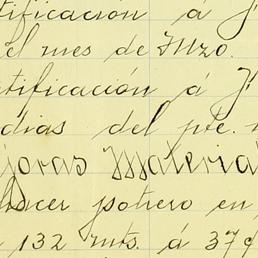 tificación á J
el mes de Mzo.
tificación á J
dias del pte.
joras Material
hacer potrero en
132 mts. á 37¢